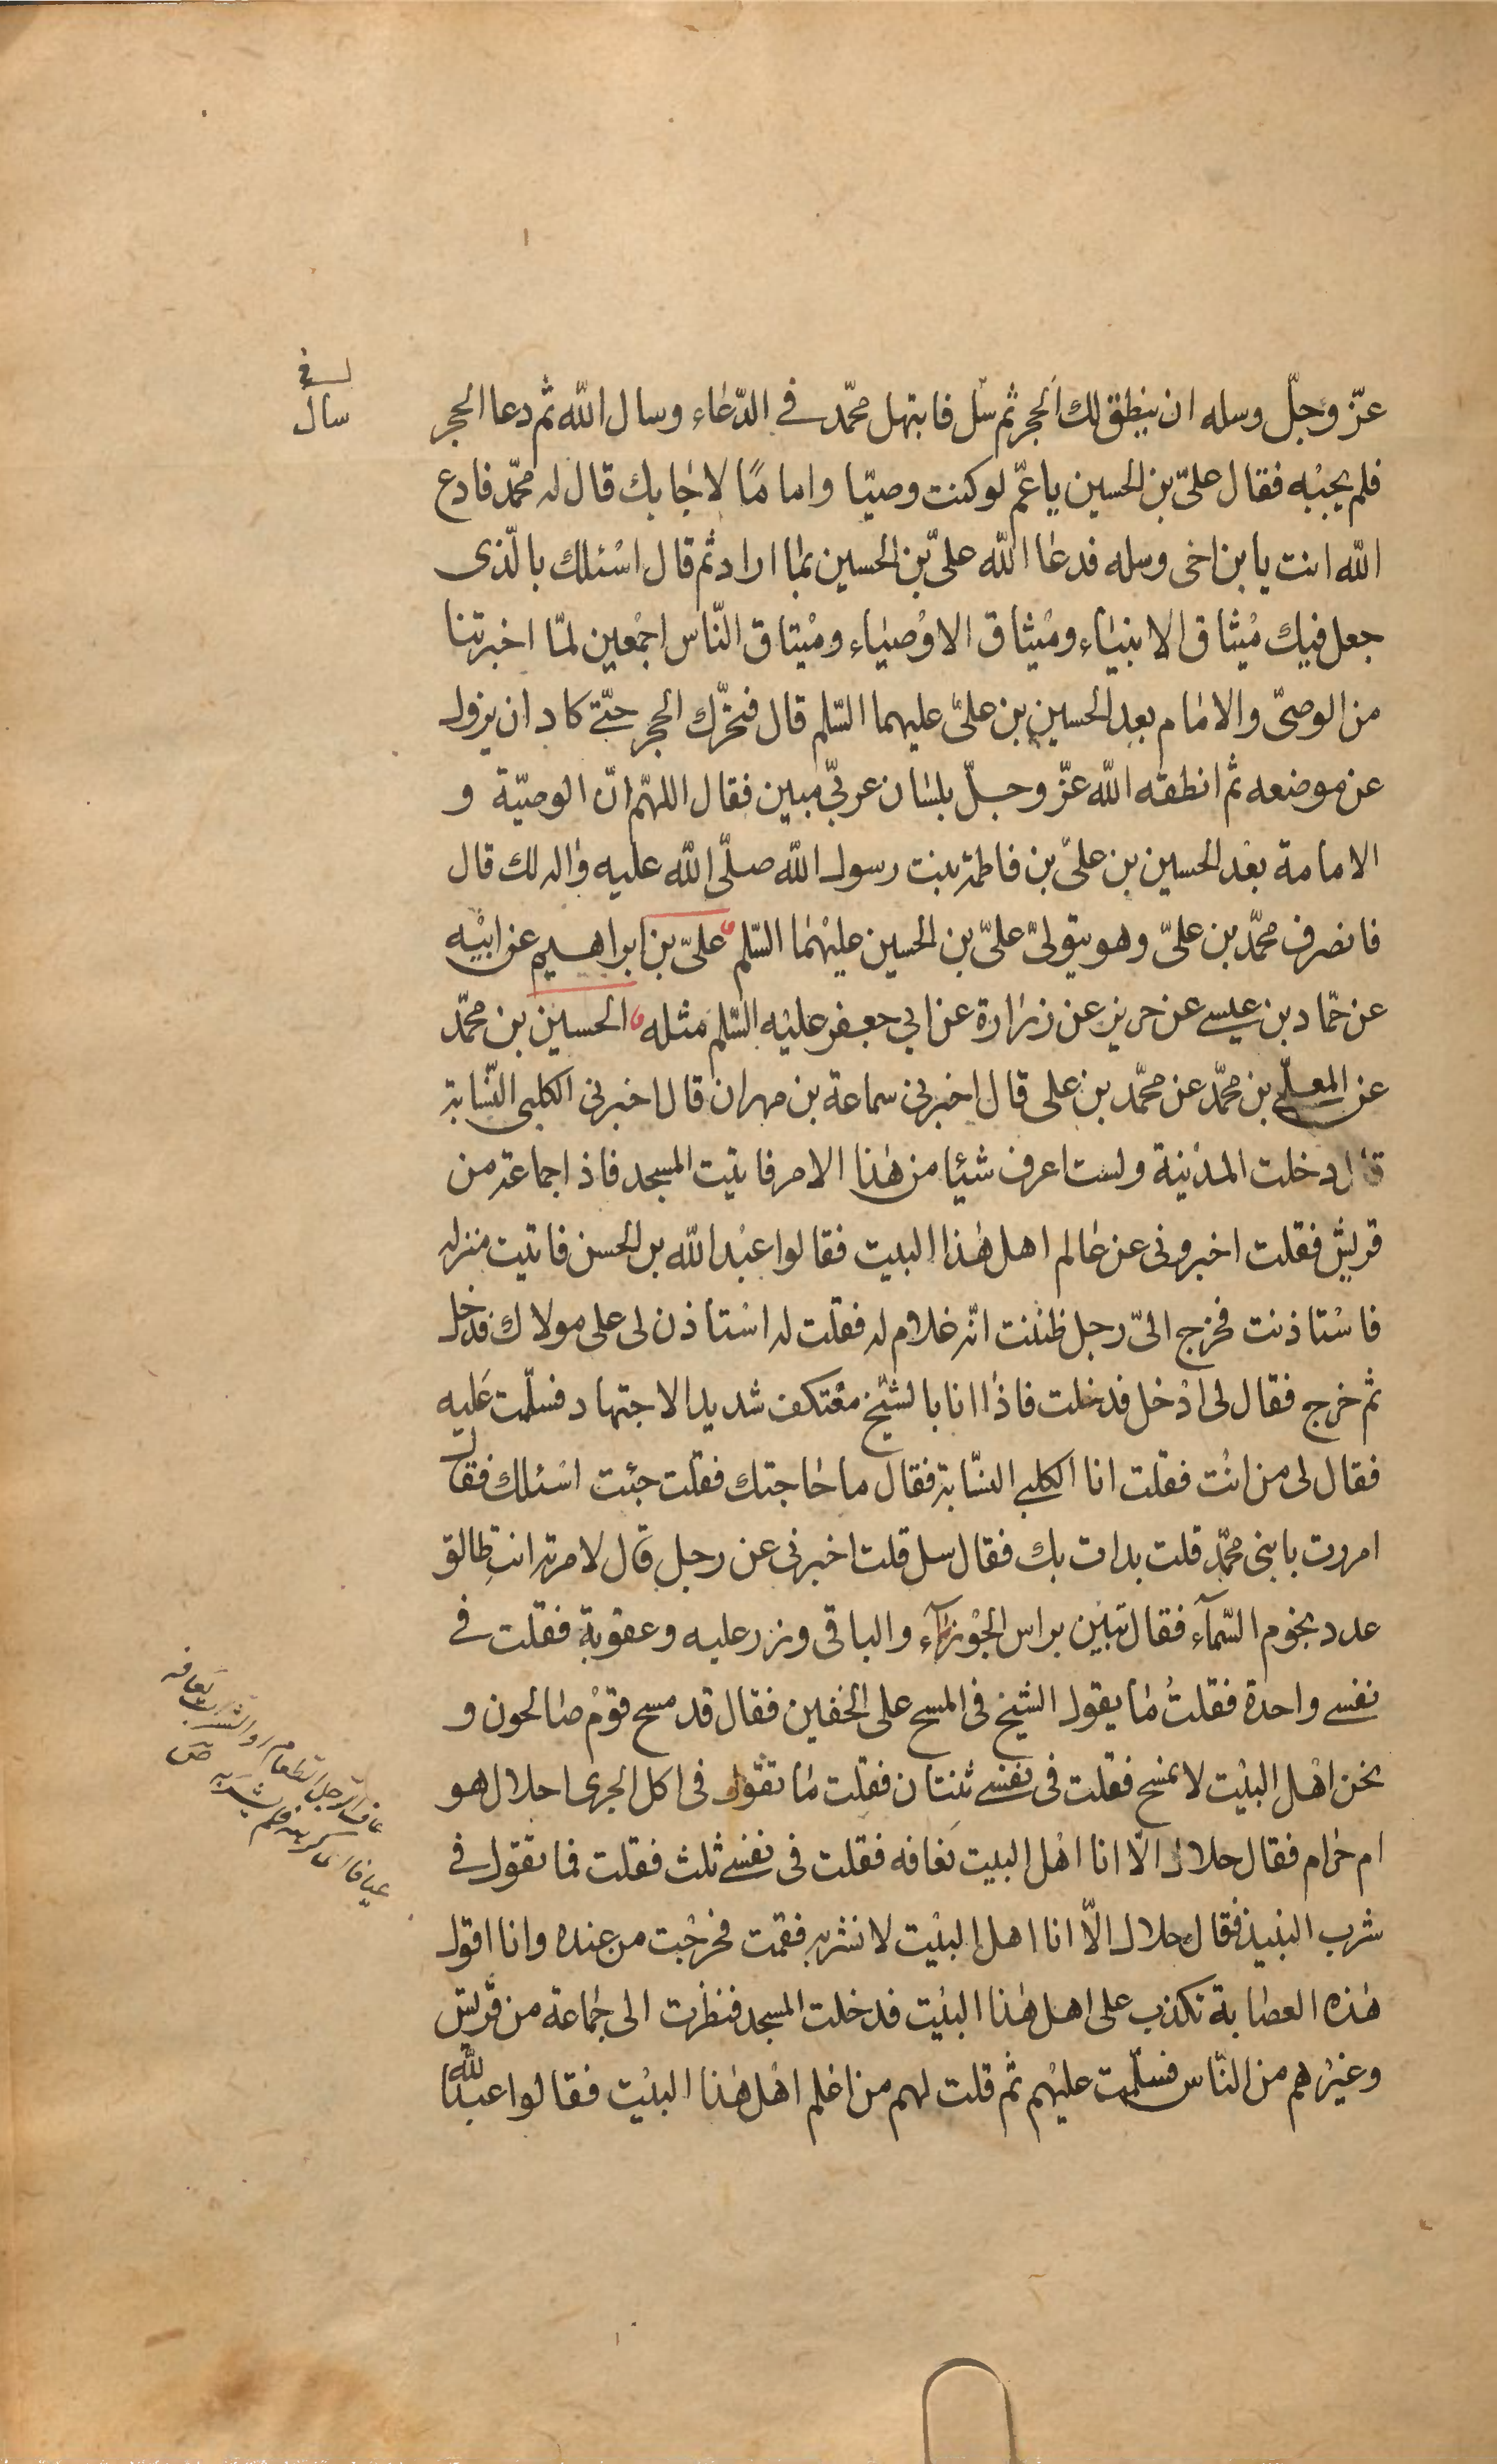 عزّ وجلّ وسله ان ينطق لك الحجر ثم سل فابتهل محمّد في الدّعاء وسال الله ثم دعا الحجر
فلم يجبه فقال علىّ بن الحسين ياعمّ لو كنت وصيّا واماما لاجابك قال له محمّد فادع
الله انت يا بن اخى وسله فدعا الله علىّ بن الحسين بما اراد ثم قال اسئلك بالّذى
جعل فيك ميثاق الانبياء وميثاق الاوصياء وميثاق النّاس اجمعين لمّا اخبرتنا
من الوصىّ والامام بعد الحسين بن علىّ عليهما السّلم قال فتحرّك الحجر حتّى كاد ان يزول
عن موضعه ثم انطقه الله عزّ وجلّ بلسان عربىّ مبين فقال اللهمّ انّ الوصيّة و
الامامة بعد الحسين بن علىّ بن فاطمة بنت رسول الله صلّى الله عليه واله لك قال
فانصرف محمّد بن علىّ وهو يتولىّ علىّ بن الحسين عليهما السّلم علىّ بن ابراهيم عن ابيه
عن حمّاد بن عيسى عن حريز عن زرارة عن ابي جعفر عليه السّلم مثله الحسين بن محمّد
عن المعلّى بن محمّد عن محمّد بن على قال اخبرنى سماعة بن مهران قال اخبرنى الكلبى النّسّابة
قال دخلت المدينة ولست اعرف شيئا من هذا الامر فاتيت المسجد فاذا جماعة من
قريش فقلت اخبرونى عن عالم اهل هذا البيت فقالوا عبد الله بن الحسن فاتيت منزله
فاستاذنت فخرج الىّ رجل ظننت انّه غلام له فقلت له استاذن لى على مولاك فدخل
ثم خرج فقال لى ادخل فدخلت فاذا انا بالشيخ معتكف شديد الاجتهاد فسلّمت عليه
فقال لى من انت فقلت انا الكلبى النسّابة فقال ما حاجتك فقلت جئت اسئلك فقال
امررت بابنى محمّد قلت بدات بك فقال سل قلت اخبرنى عن رجل قال لامرته انتِ طالق
عدد نجوم السّمآء فقال تبين براس الجوزآء والباقى وزر عليه وعقوبة فقلت في
نفسى واحدة فقلتُ ما يقول الشيخ فى المسح على الخفين فقال قد مسح قوم صالحون و
نحن اهل البيت لا نمسح فقلت فى نفسى ثنتان فقلت ما تقول فى اكل الجرى احلال هو
ام حرام فقال حلال الّا انا اهل البيت نعافه فقلت فى نفسى ثلث فقلت فما تقول في
شرب النبيذ فقال حلال الّا انا اهل البيت لا نشربه فقمت فخرجت من عنده وانا اقول
هذه العصابة تكذب على اهل هذا البيت فدخلت المسجد فنظرت الى جماعة من قريش
وغيرهم من النّاس فسلّمت عليهم ثم قلت لهم من اعلم اهل هذا البيت فقالوا عبد الله
سال
نعافه
عاف الرجل الطعام والشراب
عيافا اى كرهه فلم يشربه ص